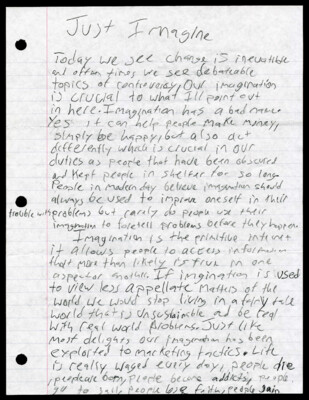 Just Imagine
Today we see change is inevitable
and often times we see debateable
topics of controversy, Our imagination
is crucial to what I'll point out
in here. Imagination has a bad name
Yes it can help people make money,
simply be happy, but also act
differently which is crucial in our
duties as people that have been obscured
and kept people in shelter for so long.
People in modern day believe imagination should
always be used to improve oneself in their
trouble with problems but rarely do people use their
imagination to foretell problems before they happen
Imagination is the primitive internet
it allows people to access information
that more than likely is true in one
aspect or another. If imagination is used
to view less appellate matters of the
world. We would stop living in a fairy tale
world that is unsustainable and be real
with real world problems. Just like
most delights our imagination has been
exploited to marketing tactics. Life
is really waged every day, people die,
people are born, people become addicts, people
go to jail, people lose faith, people gain